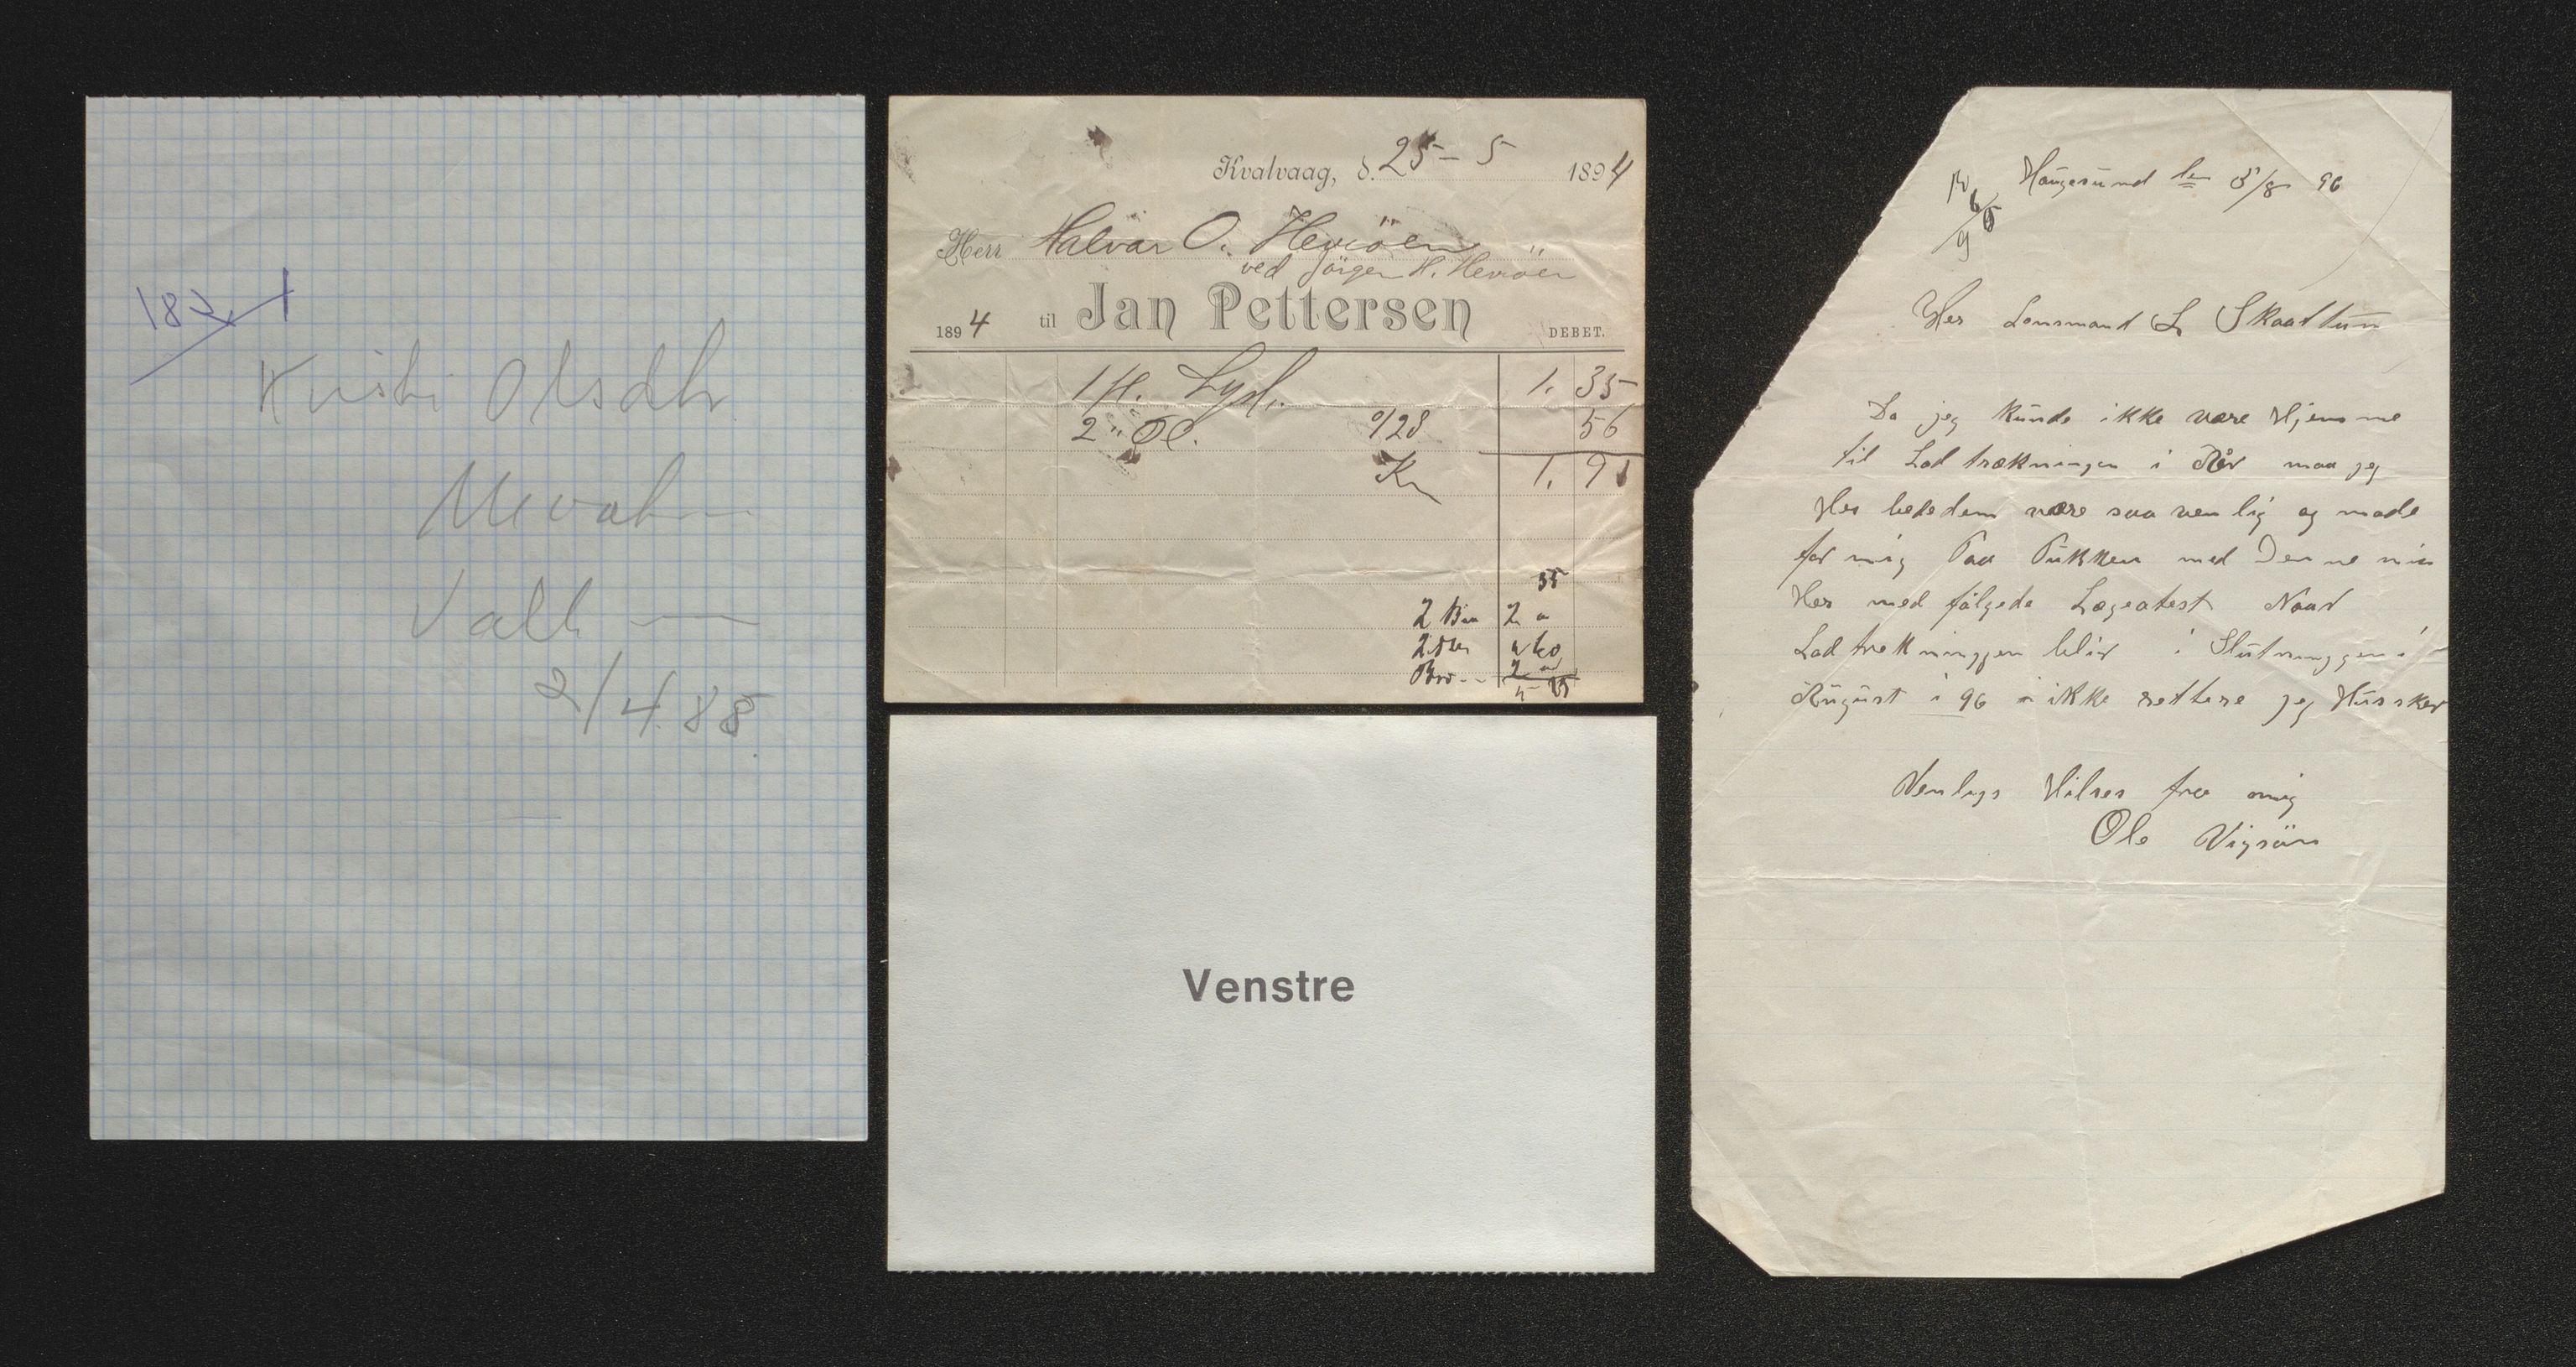 182 1
Kristi Olsdtr
Vall
2/4.88.
Kvalvaag, d. 25-5 1894
Herr Halvar O. Heviöen
ved Jörgen H. Heviöen
1894 til Jan Pettersen DEBET.
1 fl. Lysh. 1. 35
2 " Øl. a/28 56
Kr 1. 91
35
2
2
2
Venstre
Haugesund den 5/8 96
Her Lensmand L Skaattun
Da jeg kunde ikke være Hjemme
til Lod trækningen i Aar maa jeg
Her bede dem være saa venlig og møde
for mig Paa Pukken med Denne min
Her med fölgede Lægeatest Naar
Lodtrekninggen blir i Slutninggen i
August i 96 ikke rettere jeg Hussker
Venligs Hilsen fra mig
Ole Vigsön